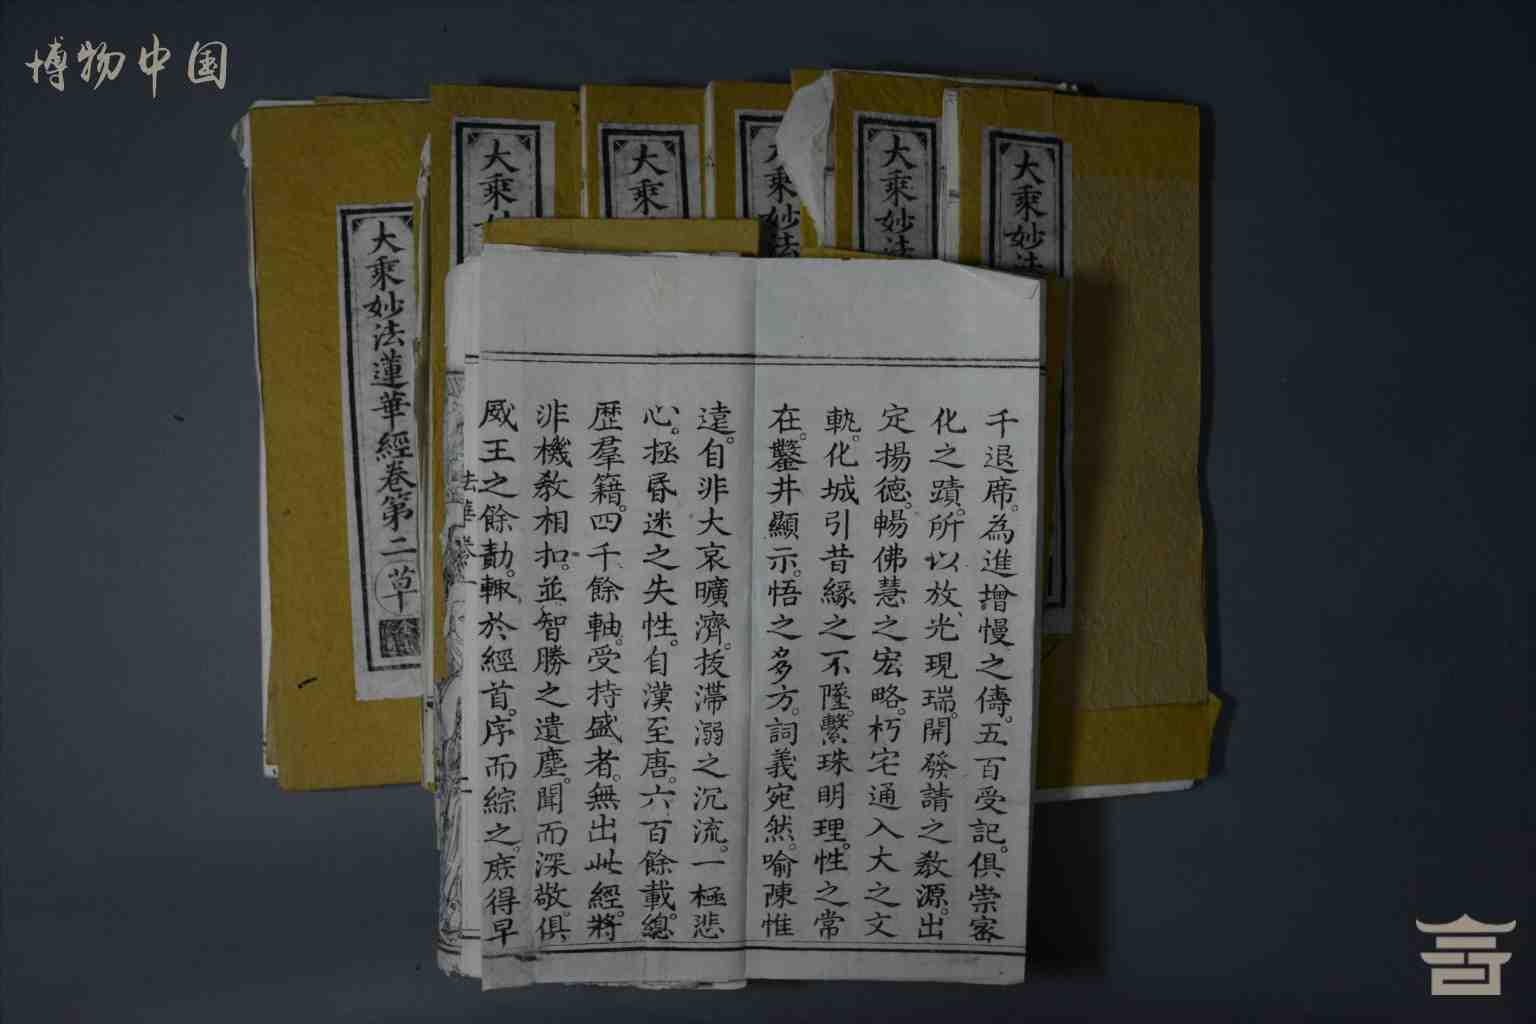 博物中国
大乘妙
大乘
大乘妙法
大乘妙法
大乘妙法
大乘妙法蓮華經卷第二
草
法華
千退席。為進增慢之儔。五百受記。俱崇密
化之蹟。所以放、光現瑞。開發請之教源。出
定揚德。暢佛慧之宏略。朽宅通入大之文
軌。化城引昔緣之不墜。繫珠明理。性之常
在。鑿井顯示。悟之多方。詞義宛然。喻陳惟
遠。自非大哀曠濟。拔滯溺之沉流。一極悲
心。拯昏迷之失性。自漢至唐。六百餘載。總
歷羣籍。四千餘軸。受持盛者。無出此經。將
非機教相扣。並智勝之遺塵。聞而深敬。俱
威王之餘勣。輙於經首。序而綜之。庶得早